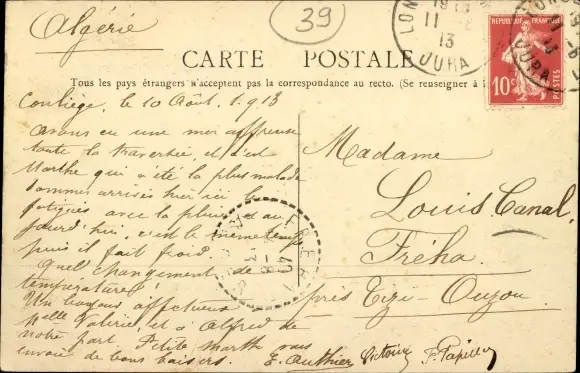 Algérie
39
CARTE POSTALE
Tous les pays étrangers n'acceptent pas la correspondance au recto. (Se renseigner à
RÉPUBLIQUE FRANÇAISE
10c
POSTES
11
13
JURA
Conliège, le 10 Août 1913
avons eu une mer affreuse
toute la traversée, et c'est
Marthe qui a été la plus malade
sommes arrivés hier ici
fatigués avec la pluie et au
jourd'hui, c'est le même temps
puis il fait froid.
Quel changement de
température!
Un bonjour affectueux
Melle Valérie, et à Alfred de
notre part. Petite Marthe vous
envoie de bons baisers.
E. Authier Victoire F. Papillon
Madame
Louis Canal,
Fréha
près Tizi-Ouzou